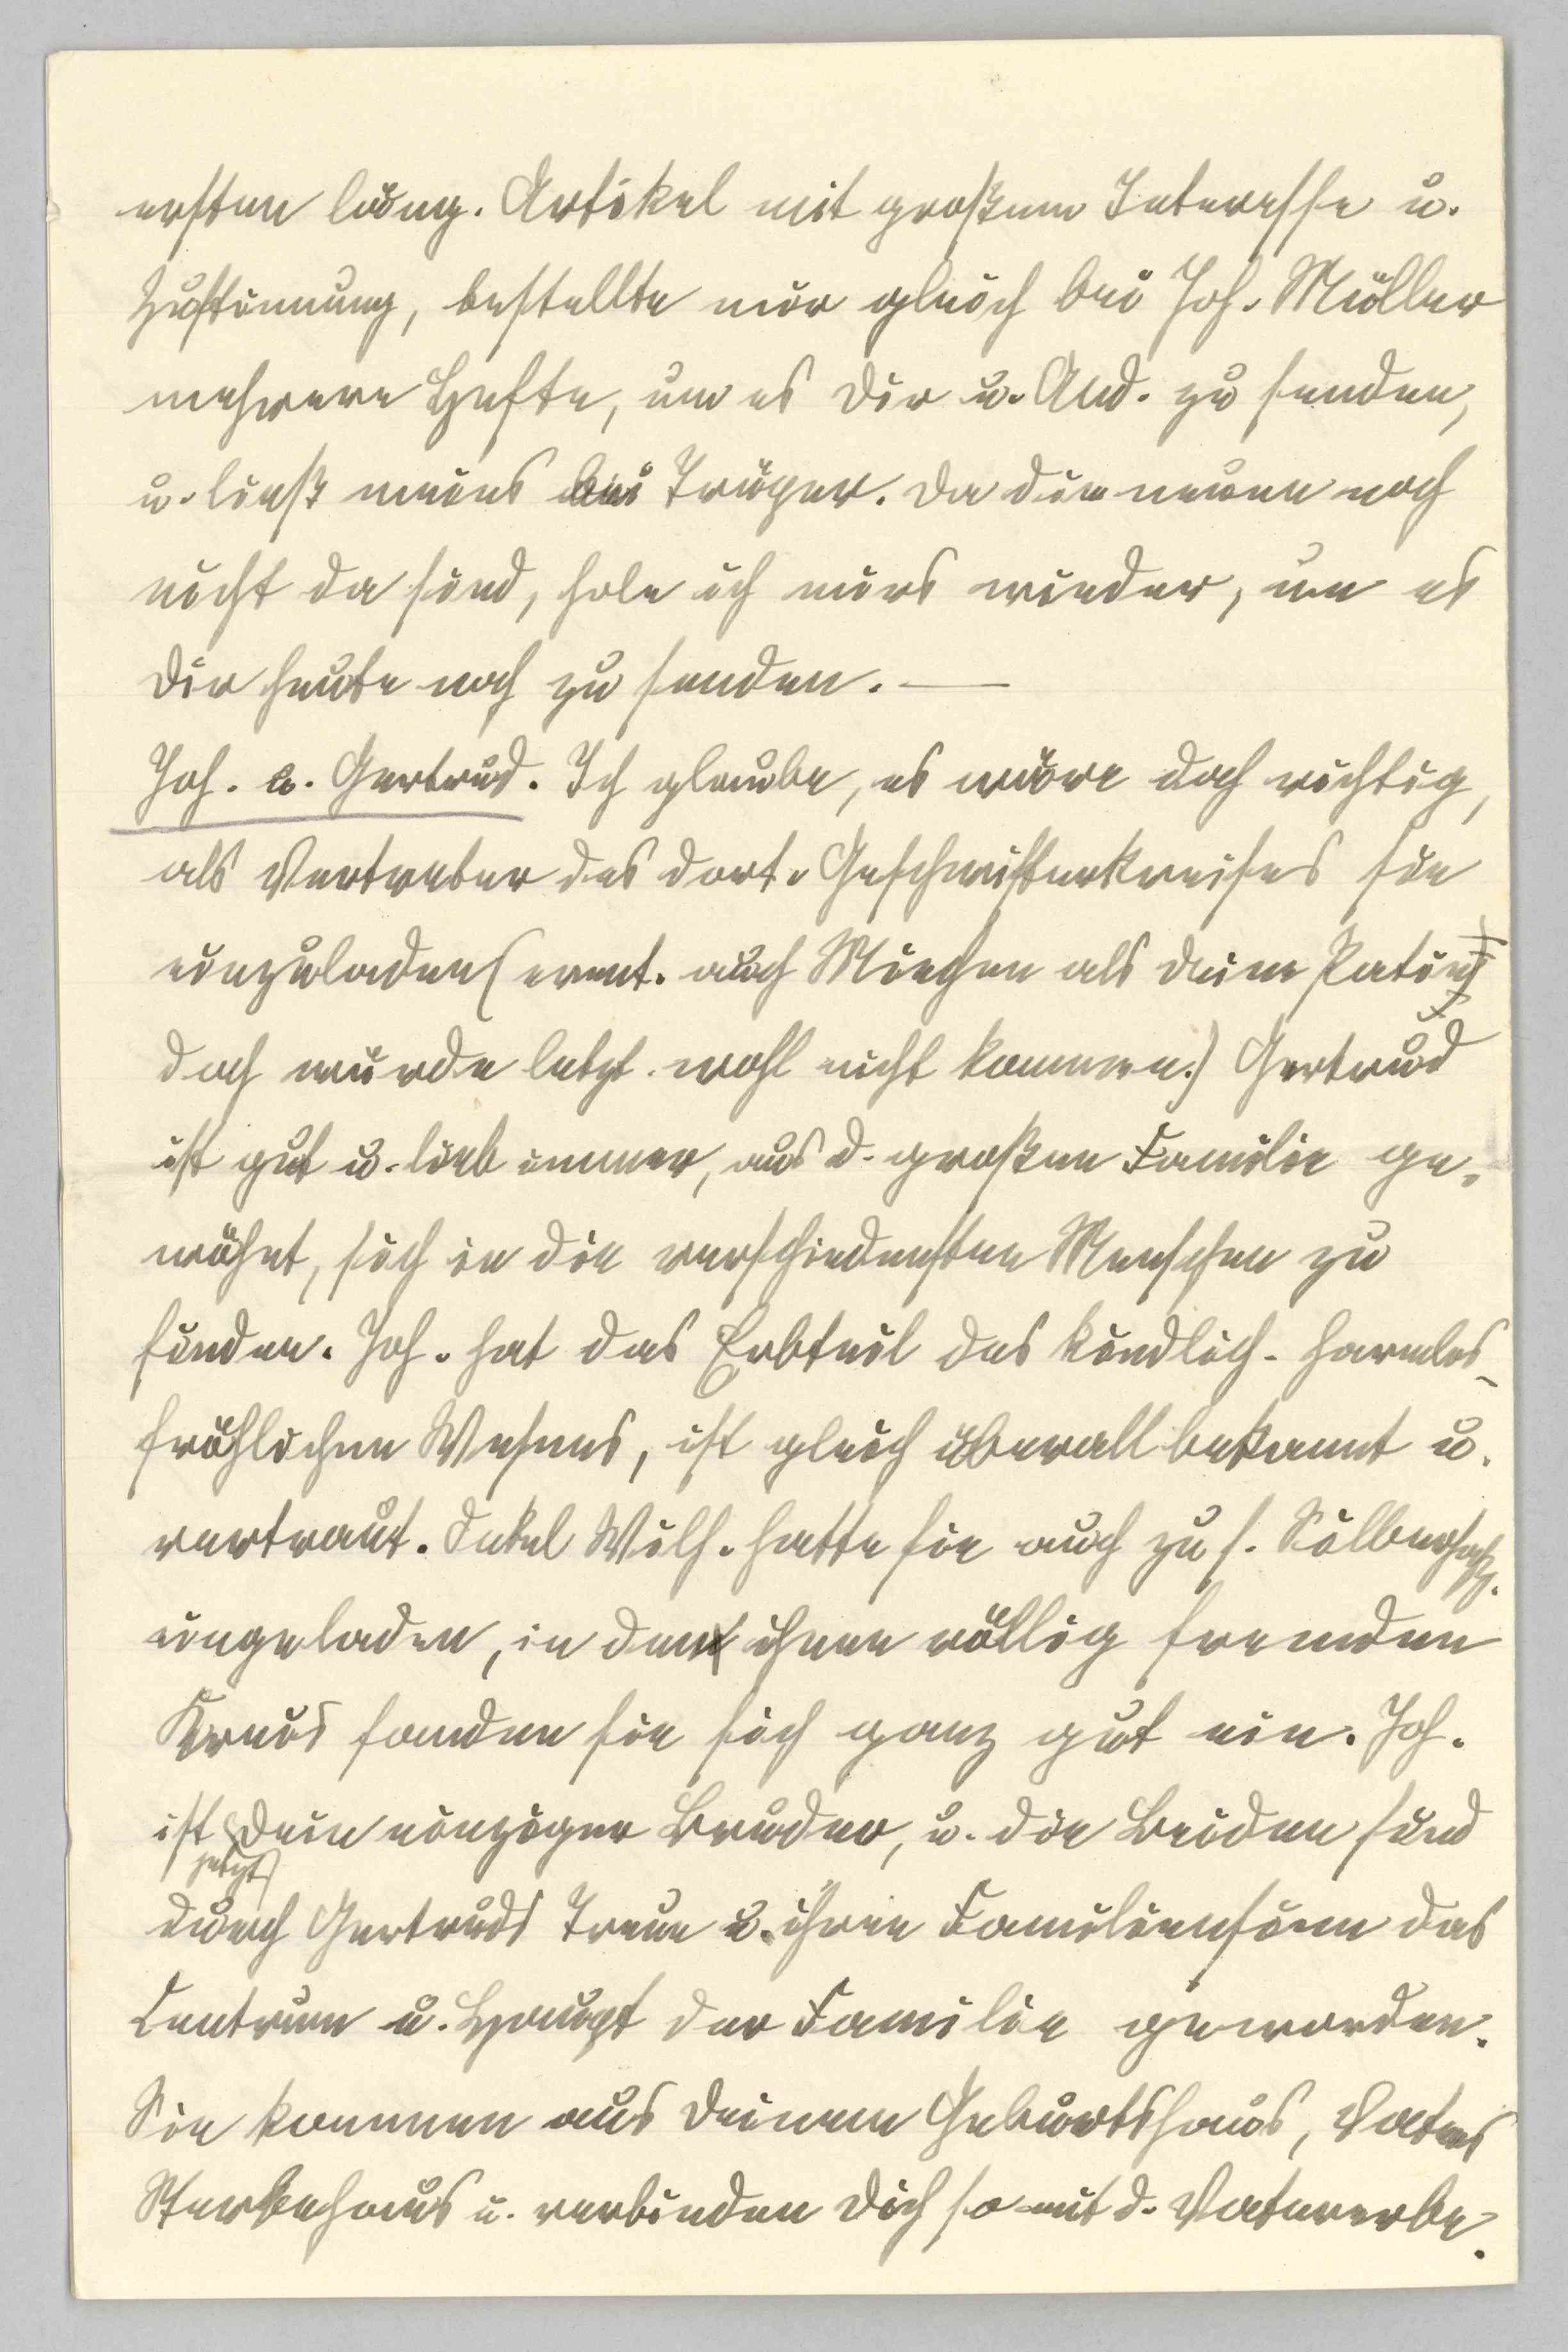 ersten läng. Artikel mit großem Interesse u.
Zustimmung, bestellte mir gleich bei Joh. Müller
mehrere Hefte, um es Dir u. And. zu senden,
u. ließ meins bei Träger. Da die neuen noch
nicht da sind, hole ich mirs wieder, um es
Dir heute noch zu senden. —
Joh. u. Gertrud. Ich glaube, es wäre doch richtig,
als Vertreter des dort. Geschwisterkreises sie
einzuladen (event. auch Miechen als Deine Patin)
doch würde letzt. wohl nicht kommen.) Gertrud
ist gut u. lieb immer, aus d. großen Familie ge-
wöhnt, sich in die verschiedensten Menschen zu
finden. Joh. hat das Erbteil des kindlich-harmlos-
fröhlichen Wesens, ist gleich überall bekannt u.
vertraut. Onkel Wilh. hatte sie auch zu s. Silberhchz.
eingeladen, in den ihnen völlig fremden
Kreis fanden sie sich ganz gut ein. Joh.
ist jetzt Dein einziger Bruder, u. die Beiden sind
durch Gertruds Treue u. ihren Familiensinn das
Centrum u. Haupt der Familie geworden.
Sie kommen aus Deinem Geburtshaus, Vaters
Sterbehaus u. verbinden Dich so mit d. Vatererbe.